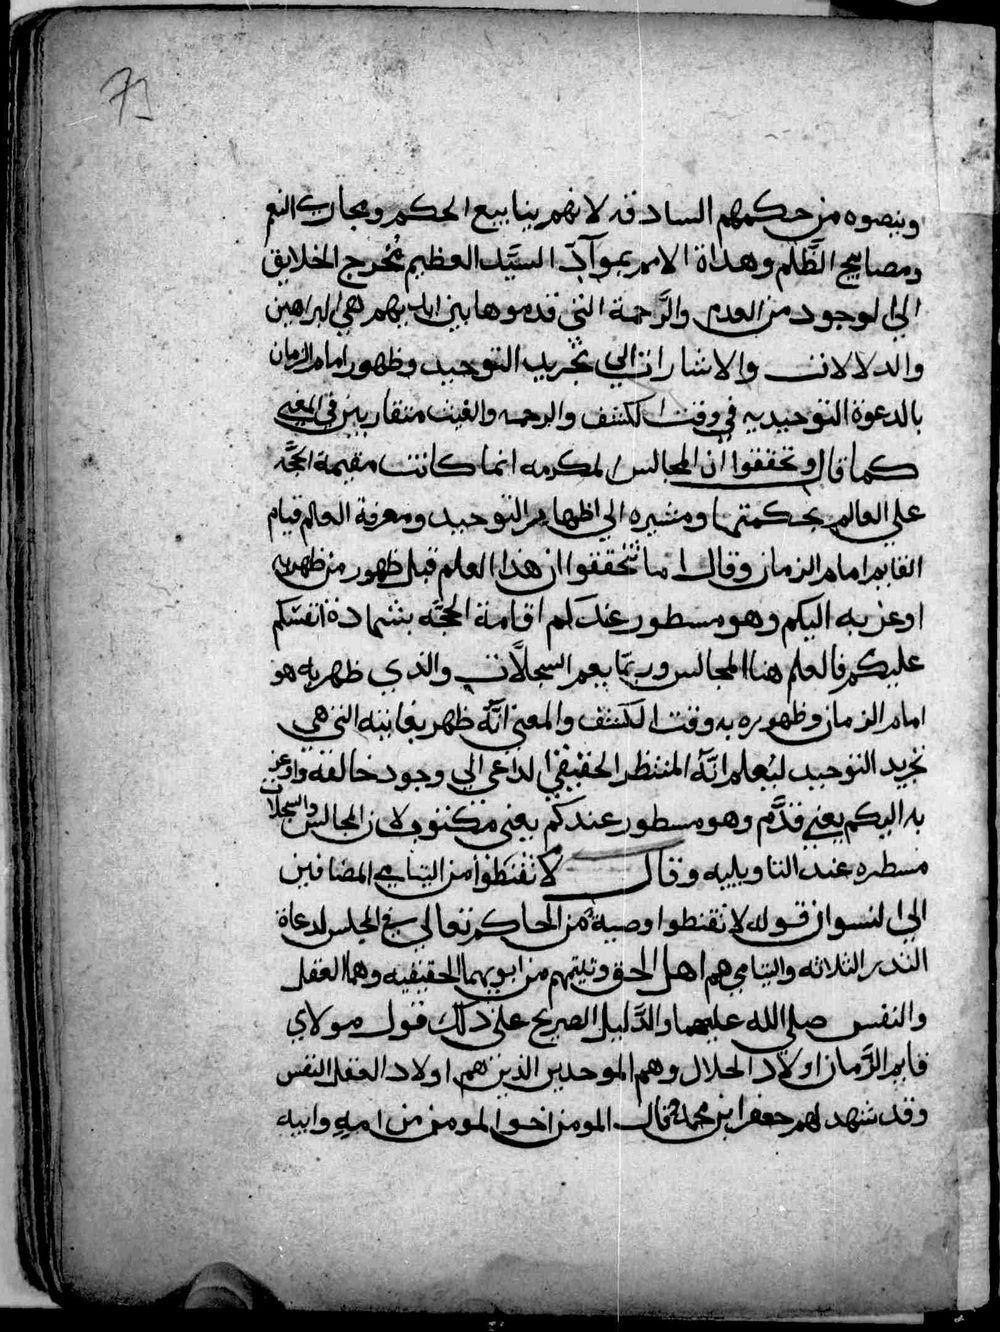 وينصوه من حكمهم السادقه لانهم ينابيع الحكم ومجارى النعم
ومصابيح الظَّلم وهداة الامم بموآدّ السيَّد العظيم مُخرج الخلايق
الي الوجود من العدم والرَّحمة التي قدموها بين ايديهم هي البراهين
والدلالات والاشارات الي تجريد التوحيد وظهور امام الزمان
بالدعوة التوحيديه في وقت الكشف والرحمه والغيث متقاربين في المعني
كما قال وتحققوا ان المجالس المكرمه انما كانت مقيمة الحجَّه
علي العالم بحكمتها ومشيره الي اظهار التوحيد ومعرفة العالم قيام
القايم امام الزمان وقال اما تتحققوا ان هذا العلم قبل ظهور من ظهر به
اوعز به اليكم وهو مسطور عندكم اقامة الحجَّه بشهادة انفسكم
عليكم فالعلم هنا المجالس وربَّما يعم السجلَّات والذي ظهر به هو
امام الزمان وظهوره به وقت الكشف والمعني انَّه ظهر بغايته التي هي
تجريد التوحيد ليُعلم انَّه المنتظر الحقيقي الداعي الي وجود خالقه واوعز
به اليكم يعني قدَّم وهو مسطور عندكم يعني مكتوب لان المجالس والسجلات
مسطره عند التاويليه وقال لا تقنطوا من اليتامي المضافين
الي النسوان قوله لا تقنطوا وصية من الحاكم تعالي في المجلس لدعاة
النذر الثلاثه واليتامي هم اهل الحق ويتيتمهم من ابويهما الحقيقيه وهما العقل
والنفس صلي الله عليهما والدَّليل الصريح علي ذلك قول مولاي
قايم الزَّمان اولاد الحلال وهم الموحدين الذين هم اولاد العقل والنفس
وقد شهد لهم جعفر ابن محمد فقال المومن اخو المومن من امه وابيه